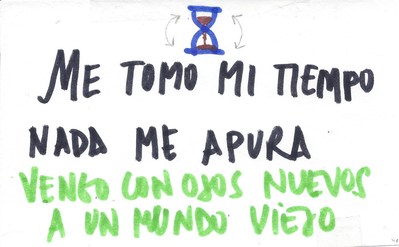 ME TOMO MI TIEMPO
NADA ME APURA
VENGO CON OJOS NUEVOS
A UN MUNDO VIEJO